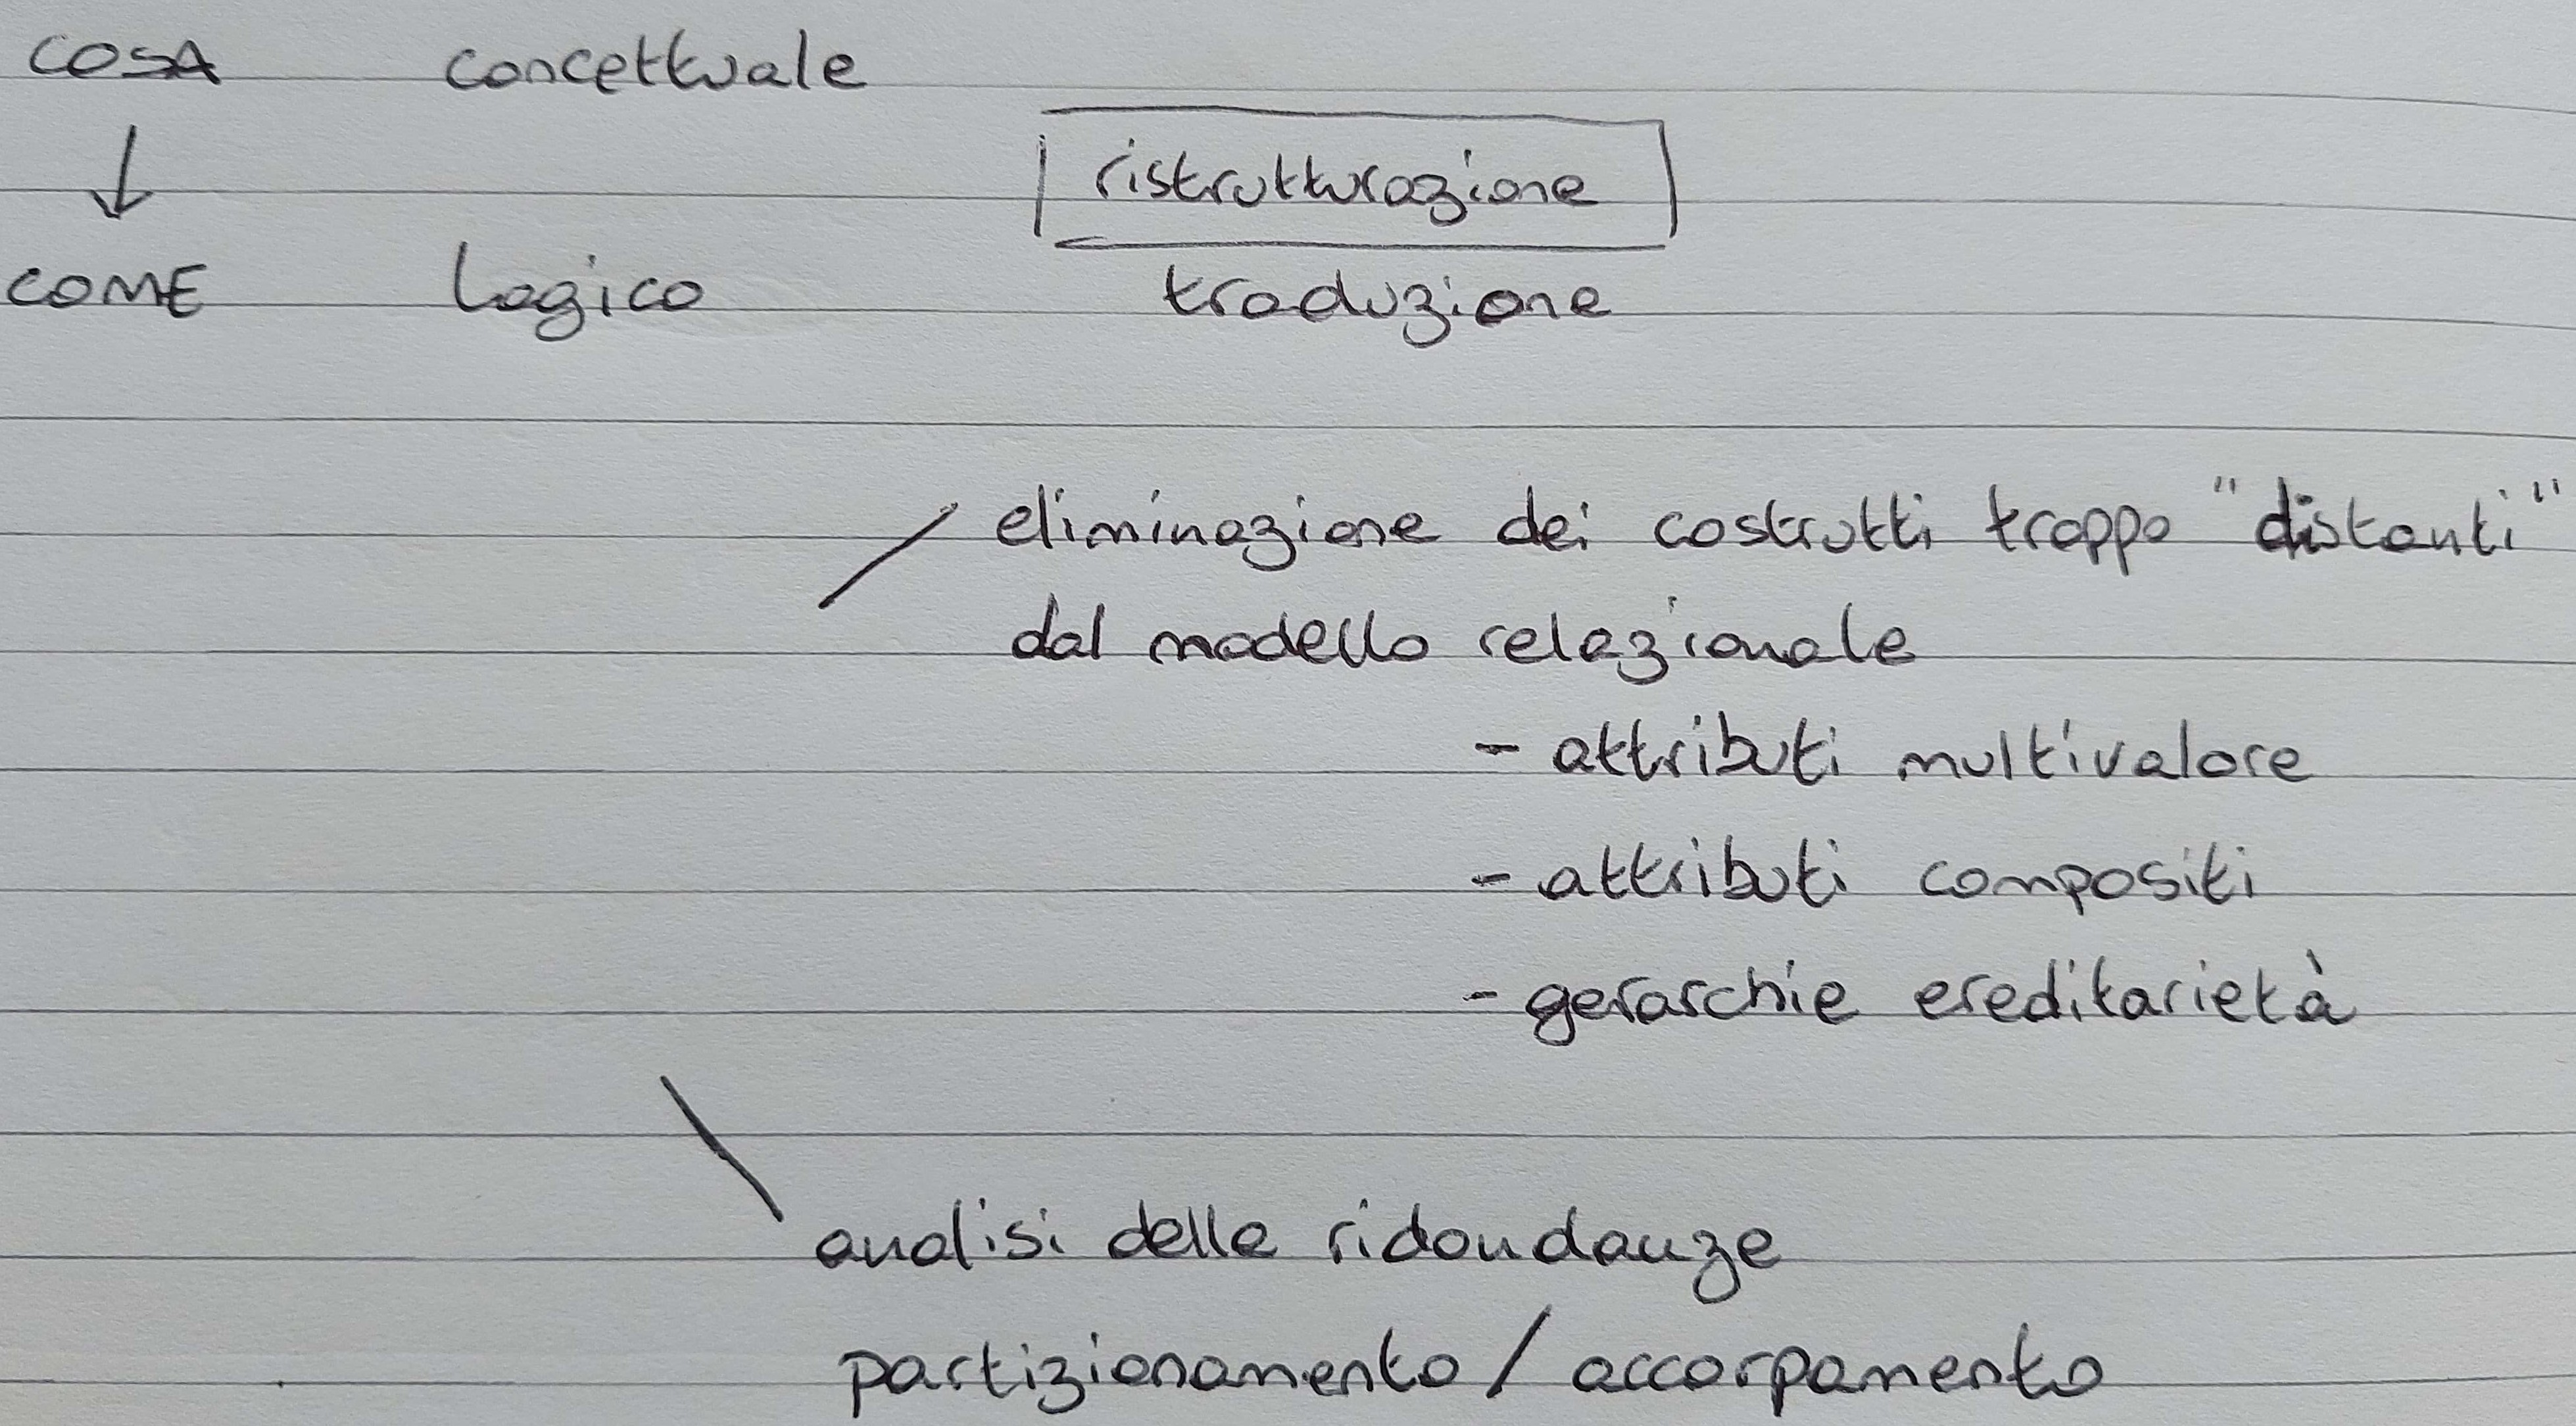 COSA concettuale
ristrutturazione
COME Logico traduzione
eliminazione dei costrutti troppo "distanti"
dal modello relazionale
- attributi multivalore
- attributi compositi
- gerarchie ereditarietà
analisi delle ridondanze
partizionamento / accorpamento